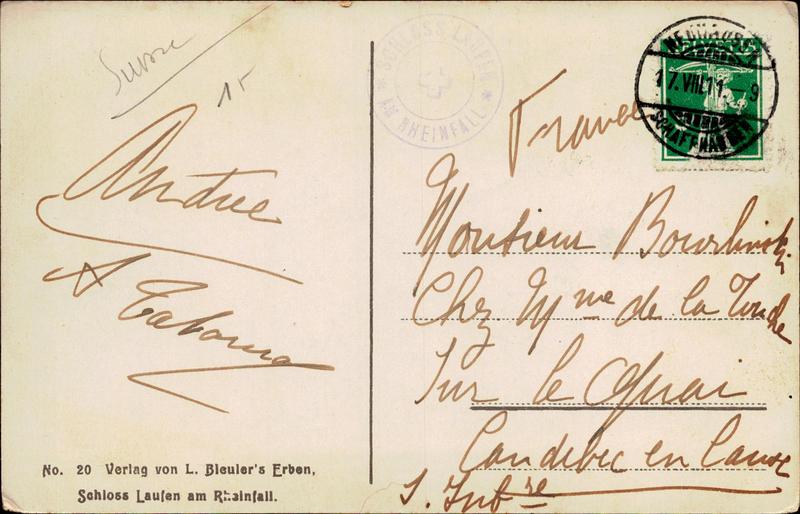 Suisse
15
Andrée
No. 20 Verlag von L. Bleuler's Erben,
Schloss Laufen am Rheinfall.
SCHLOSS LAUFEN
AM RHEINFALL
NEUHAUSEN
17.VIII.11.–9
SCHAFFHAUSEN
France
Monsieur
Chez Mme de la Touche
Sur le Quai
Caudebec en Caux
S. Infre